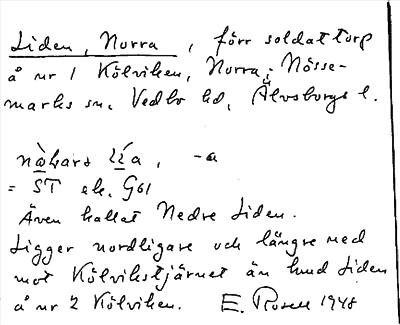 Liden, Norra, förr soldattorp
å nr 1 Kölviken, Norra; Nösse-
marks sn. Vedbo hd, Älvsborgs l.
nòhars lía, -a
= ST ek. G61
Även kallat Nedre Liden.
Ligger nordligare och längre ned
mot Kölvikstjärnet än hund Liden
å nr 2 Kölviken. E. Rosell 1948